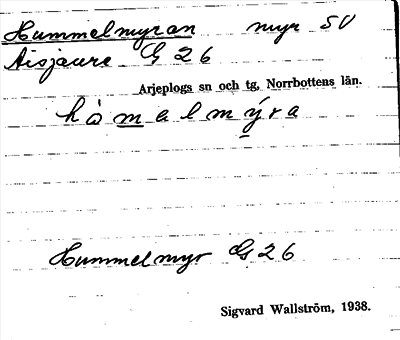 Hummelmyran myr SV
Aisjaure G 26
Arjeplogs sn och tg, Norrbottens län.
håmelmýra
Hummelmyr G 26
Sigvard Wallström, 1938.